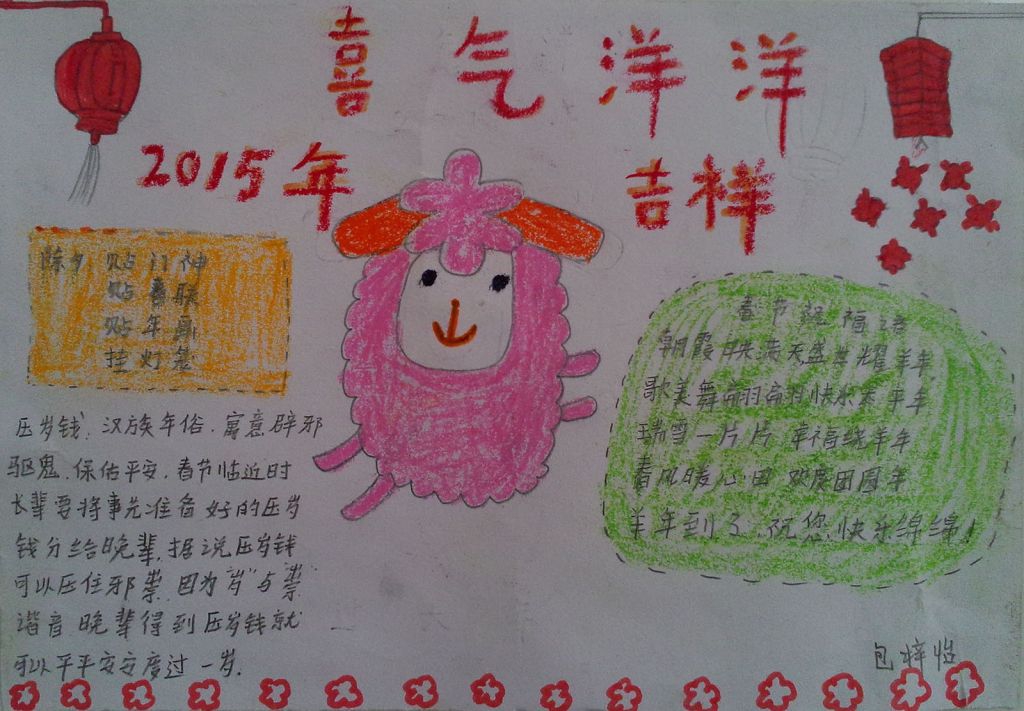 喜气洋洋
2015年 吉祥
除夕 贴门神
贴春联
贴年画
挂灯笼
压岁钱,汉族年俗.寓意辟邪
驱鬼.保佑平安.春节临近时
长辈要将事先准备好的压岁
钱分给晚辈.据说压岁钱
可以压住邪祟.因为"岁"与"祟"
谐音.晚辈得到压岁钱就
可以平平安安度过一岁.
春节祝福语
朝霞映满天盛世耀羊年
歌美舞翩翩快乐 年
瑞雪一片片 幸福绕羊年
春风暖心田 欢度团圆年
羊年到了.祝您快乐绵绵!
包梓怡